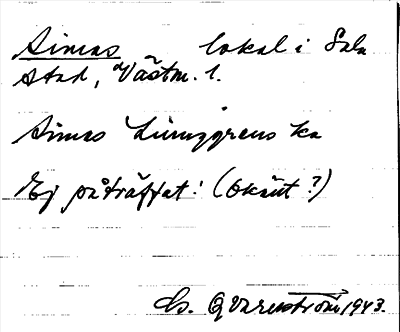 Simas lokal i Sala
stad, Västm. l.
Simas Ljunggrens ka
Ej påträffat! (Okänt?)
G. Qvarnström 1943.